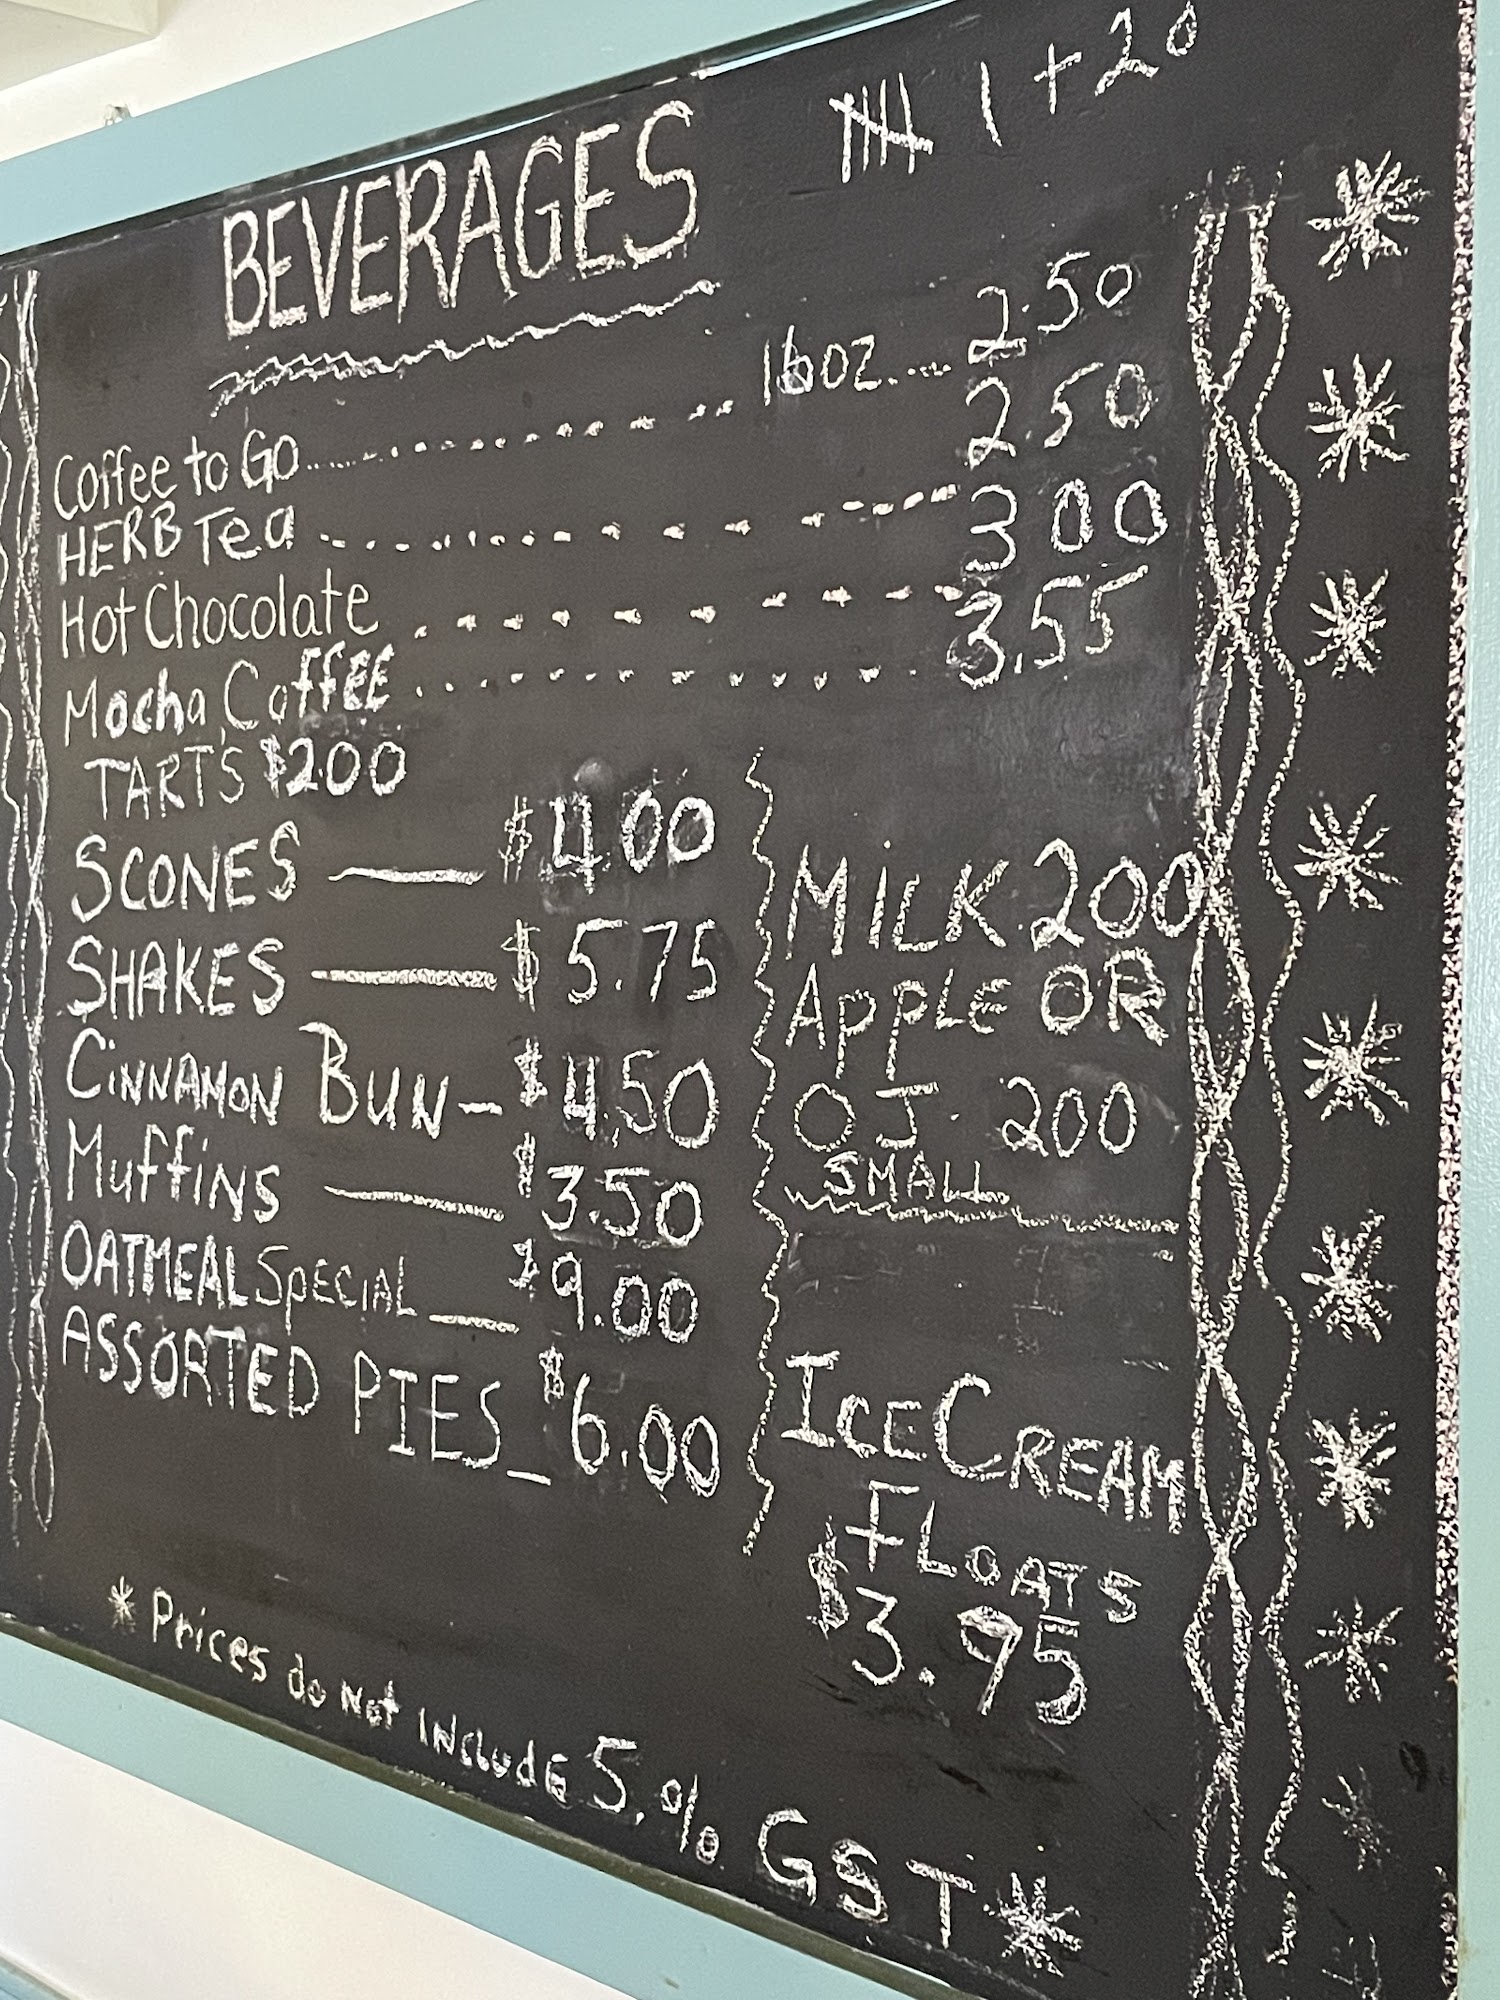 1 + 20
BEVERAGES
Coffee to Go 16oz.... 2.50
HERB Tea 2 50
Hot Chocolate 3 00
Mocha Coffee 3.55
TARTS $2.00
SCONES — $4.00
SHAKES — $5.75
CINNAMON BUN - $4.50
Muffins — $3.50
OATMEAL SPECIAL — $9.00
ASSORTED PIES _ $6.00
MiLK 200
APPLE OR
OJ. 200
SMALL
ICE CREAM
FLOATS
$3.95
* Prices do Not INCLUDE 5.% GST *